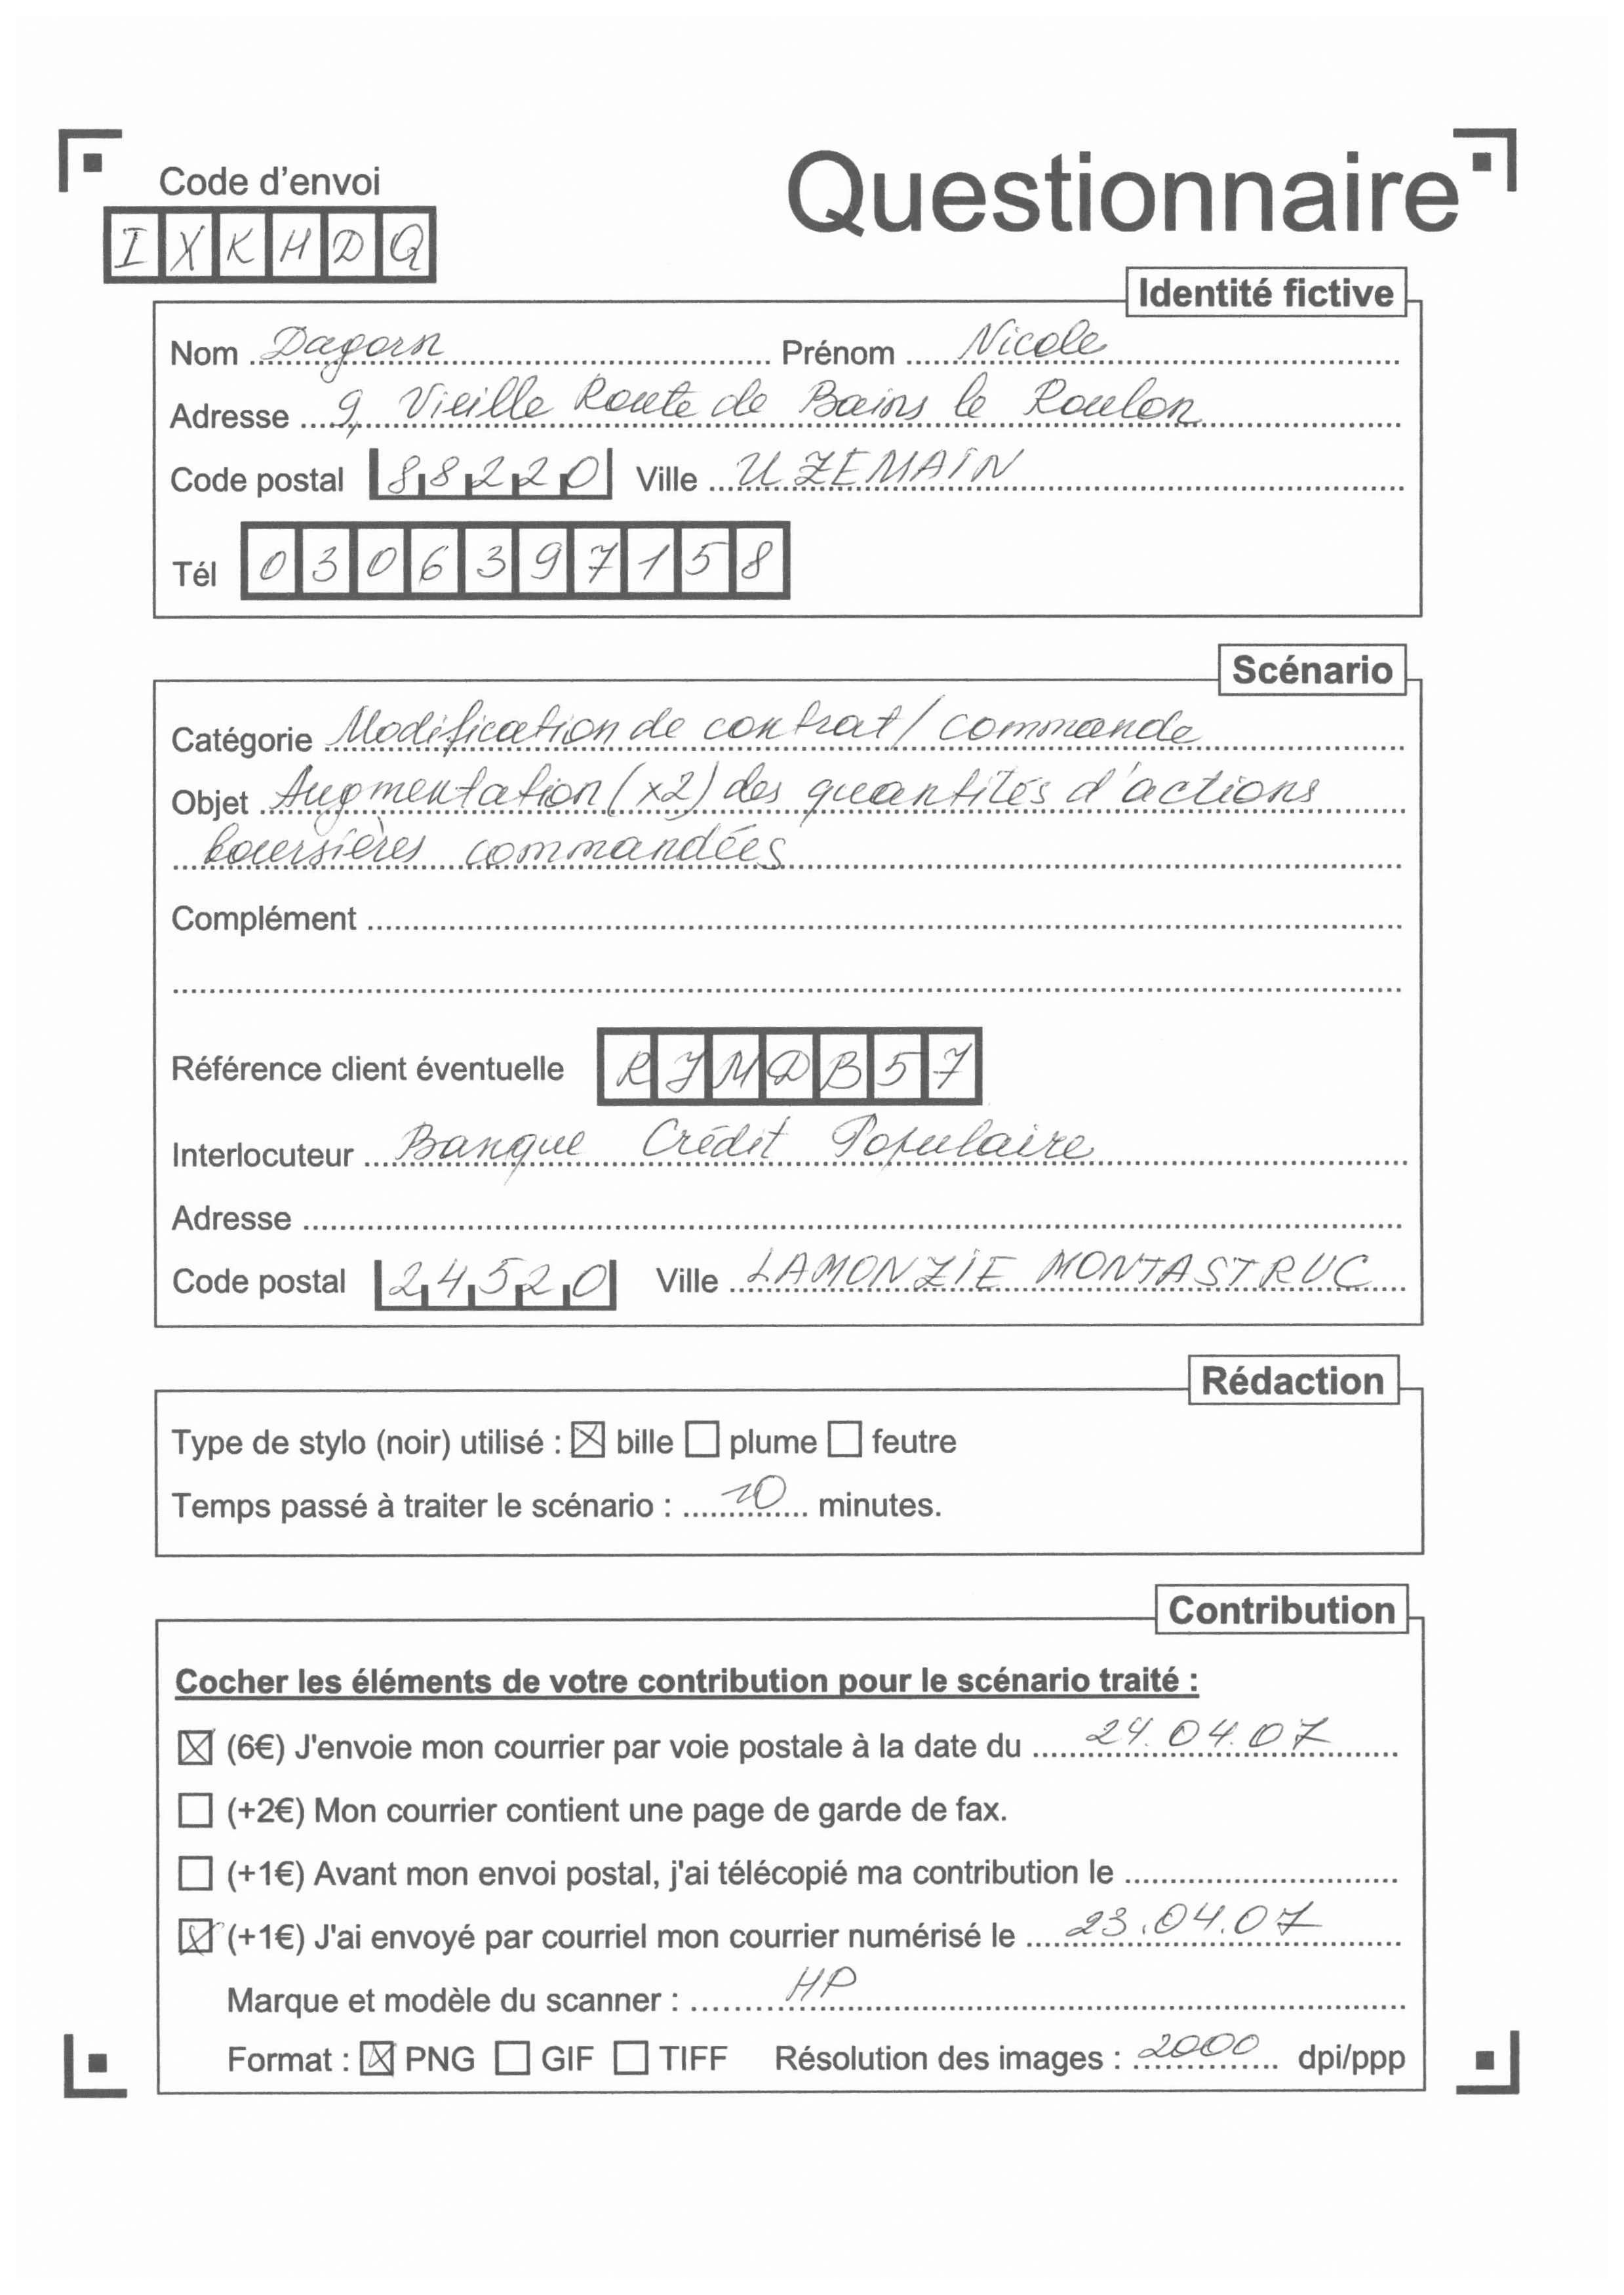 Code d'envoi
Questionnaire
IXKHDQ
Identité fictive
Nom Dagorn Prénom Nicole
Adresse 9, Vieille Route de Bains le Roulon
Code postal 88220 Ville UZEMAIN
Tél 0306397158
Scénario
Catégorie Modification de contrat / commande
Objet Augmentation (x2) des quantités d'actions
boursières commandées
Complément
Référence client éventuelle RJMDB57
Interlocuteur Banque Crédit Populaire
Adresse
Code postal 24520 Ville LAMONZIE MONTASTRUC
Rédaction
Type de stylo (noir) utilisé : bille plume feutre
Temps passé à traiter le scénario : 10 minutes.
Contribution
Cocher les éléments de votre contribution pour le scénario traité :
(6€) J'envoie mon courrier par voie postale à la date du 24.04.07
(+2€) Mon courrier contient une page de garde de fax.
(+1€) Avant mon envoi postal, j'ai télécopié ma contribution le
(+1€) J'ai envoyé par courriel mon courrier numérisé le 23.04.07
Marque et modèle du scanner : HP
Format : PNG GIF TIFF Résolution des images : 2000 dpi/ppp